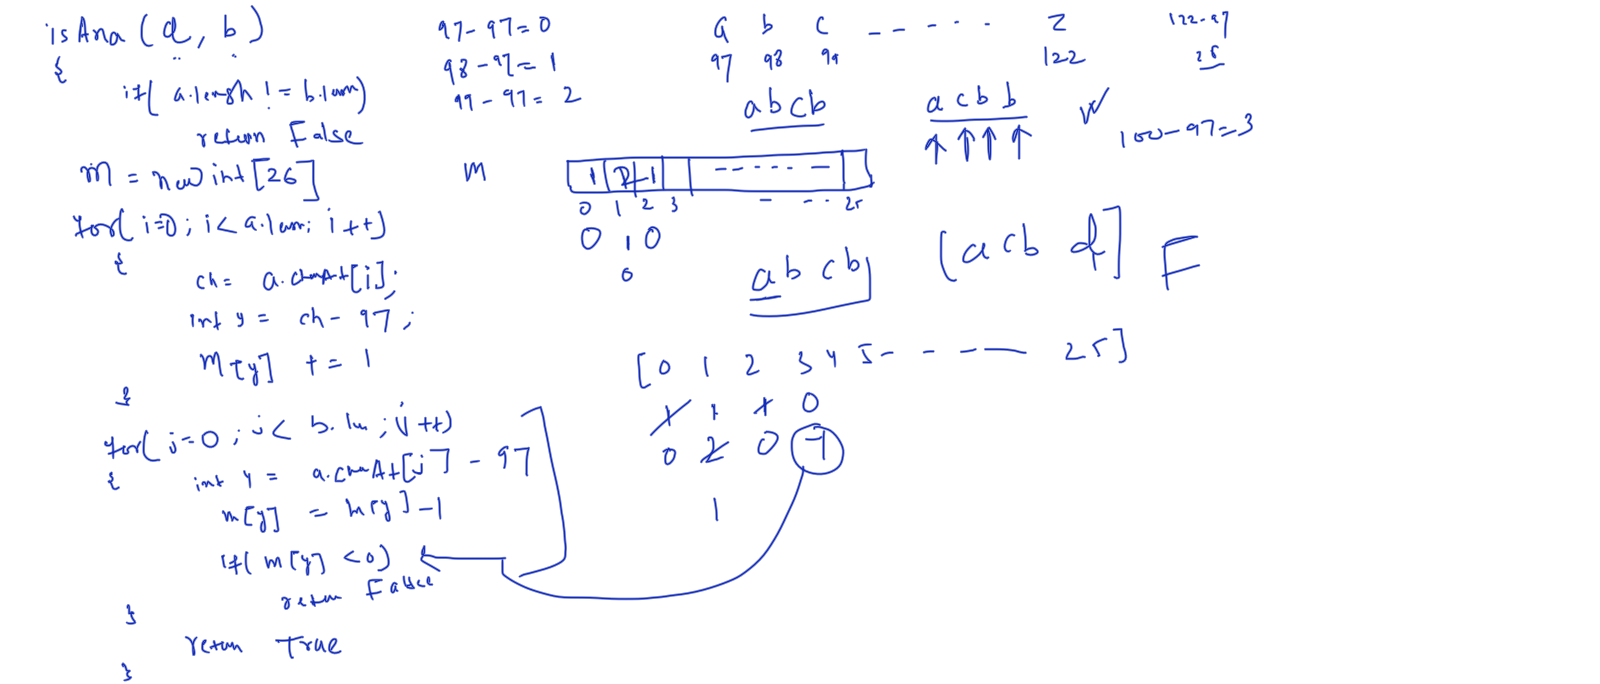 isAna (a, b)
{
if( a.lengh != b.len)
return False
m = new int [26]
for( i=0; i< a.len; i++)
{
ch= a.charAt[i];
int y = ch- 97;
m[y] += 1
}
for( j=0; j< b.len; j++)
{
int y = a.charAt[j] - 97
m[y] = m[y] -1
if( m[y] <0)
return False
}
return True
}
97-97=0
98-97= 1
99-97= 2
a b c ------ z
97 98 99 122
122-97
25
abcb
acbb
100-97=3
m
1 2 1 ----- -
0 1 2 3 - -- 25
0 1 0
0
abcb
[acb d] F
[0 1 2 3 4 5- - -- 25]
1 1 1 0
0 2 0 -1
1